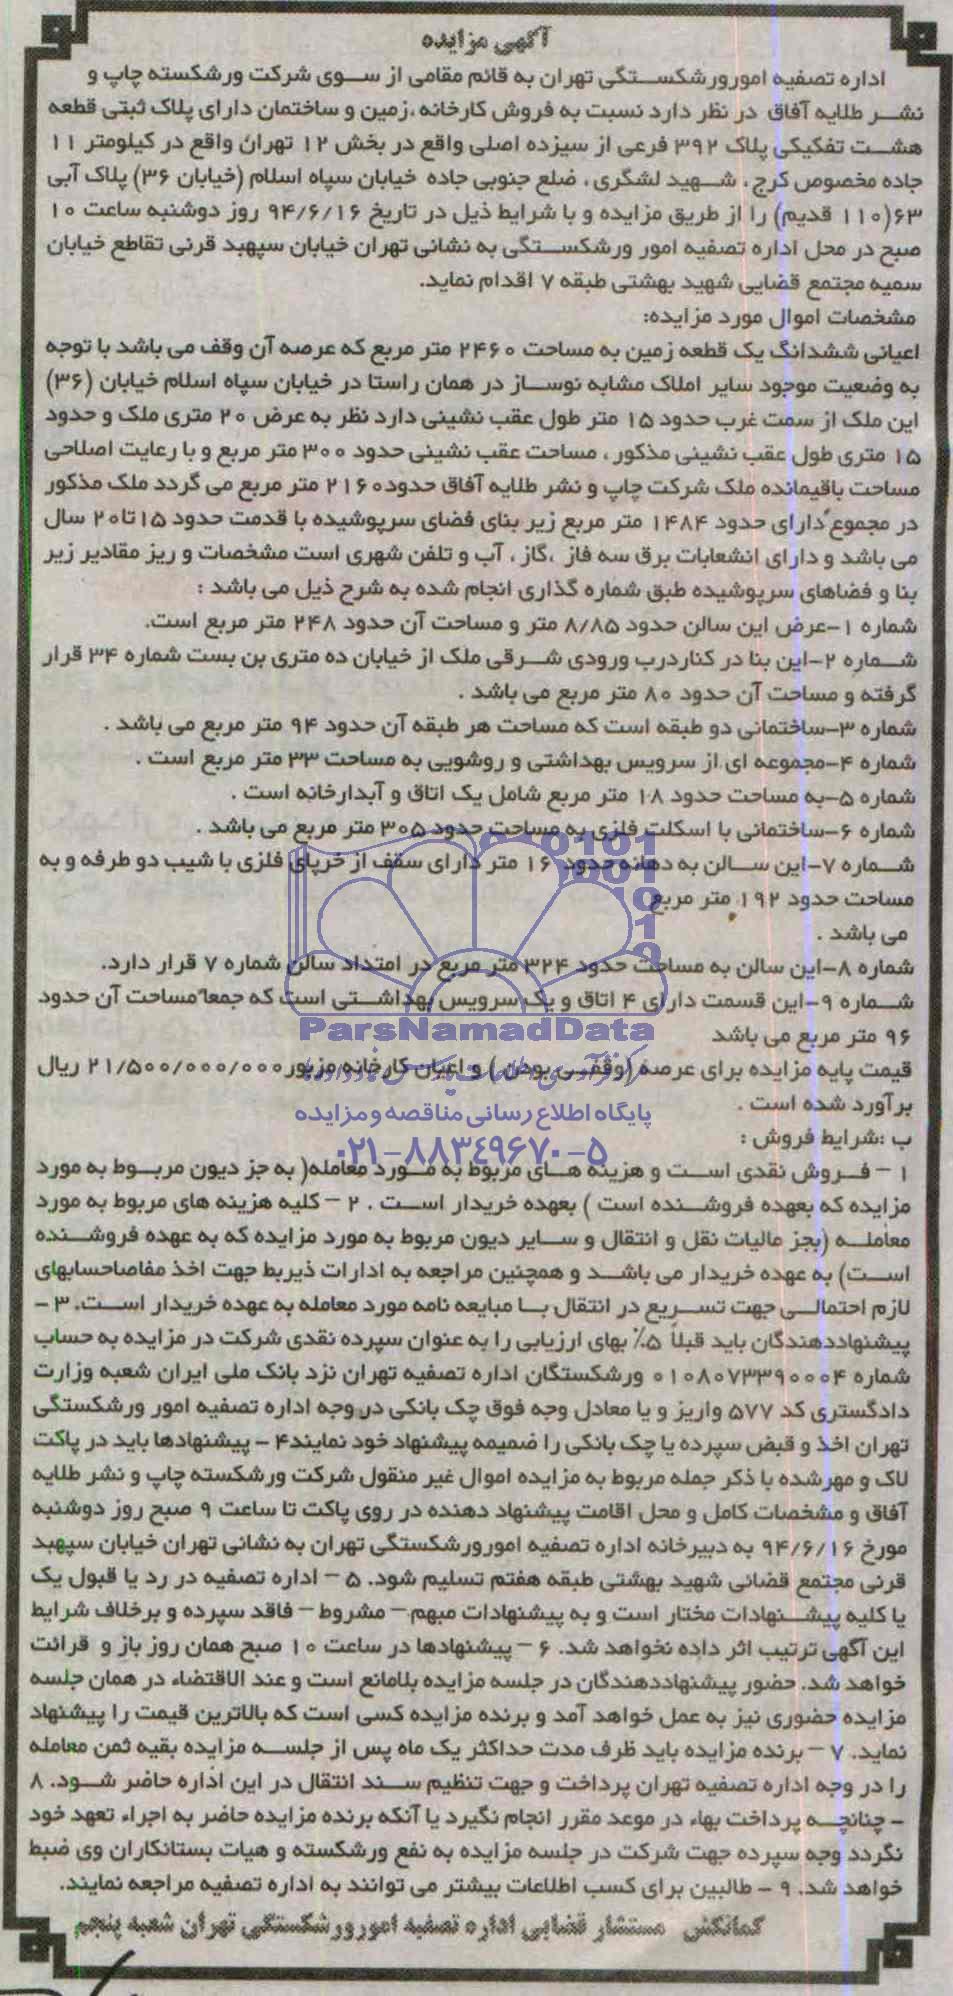 آگهی مزایده
اداره تصفیه امورورشکستگی تهران به قائم مقامی از سوی شرکت ورشکسته چاپ و
نشر طلایه آفاق در نظر دارد نسبت به فروش کارخانه ،زمین و ساختمان دارای پلاک ثبتی قطعه
هشت تفکیکی پلاک ۳۹۲ فرعی از سیزده اصلی واقع در بخش ۱۲ تهران واقع در کیلومتر ۱۱
جاده مخصوص کرج ، شهید لشگری ، ضلع جنوبی جاده خیابان سپاه اسلام (خیابان ۳۶) پلاک آبی
۶۳(۱۱۰ قدیم) را از طریق مزایده و با شرایط ذیل در تاریخ ۹۴/۶/۱۶ روز دوشنبه ساعت ۱۰
صبح در محل اداره تصفیه امور ورشکستگی به نشانی تهران خیابان سپهبد قرنی تقاطع خیابان
سمیه مجتمع قضایی شهید بهشتی طبقه ۷ اقدام نماید.
مشخصات اموال مورد مزایده:
اعیانی ششدانگ یک قطعه زمین به مساحت ۲۴۶۰ متر مربع که عرصه آن وقف می باشد با توجه
به وضعیت موجود سایر املاک مشابه نوساز در همان راستا در خیابان سپاه اسلام خیابان (۳۶)
این ملک از سمت غرب حدود ۱۵ متر طول عقب نشینی دارد نظر به عرض ۲۰ متری ملک و حدود
۱۵ متری طول عقب نشینی مذکور ، مساحت عقب نشینی حدود ۳۰۰ متر مربع و با رعایت اصلاحی
مساحت باقیمانده ملک شرکت چاپ و نشر طلایه آفاق حدود۲۱۶۰ متر مربع می گردد ملک مذکور
در مجموع دارای حدود ۱۴۸۴ متر مربع زیر بنای فضای سرپوشیده با قدمت حدود ۱۵تا۲۰ سال
می باشد و دارای انشعابات برق سه فاز ،گاز ، آب و تلفن شهری است مشخصات و ریز مقادیر زیر
بنا و فضاهای سرپوشیده طبق شماره گذاری انجام شده به شرح ذیل می باشد :
شماره ۱-عرض این سالن حدود ۸/۸۵ متر و مساحت آن حدود ۲۴۸ متر مربع است.
شماره ۲-این بنا در کناردرب ورودی شرقی ملک از خیابان ده متری بن بست شماره ۳۴ قرار
گرفته و مساحت آن حدود ۸۰ متر مربع می باشد .
شماره ۳-ساختمانی دو طبقه است که مساحت هر طبقه آن حدود ۹۴ متر مربع می باشد .
شماره ۴-مجموعه ای از سرویس بهداشتی و روشویی به مساحت ۳۳ متر مربع است .
شماره ۵-به مساحت حدود ۱۸ متر مربع شامل یک اتاق و آبدارخانه است .
شماره ۶-ساختمانی با اسکلت فلزی به مساحت حدود ۳۰۵ متر مربع می باشد .
شماره ۷-این سالن به دهانه حدود ۱۶ متر دارای سقف از خرپای فلزی با شیب دو طرفه و به
مساحت حدود ۱۹۲ متر مربع
می باشد .
شماره ۸-این سالن به مساحت حدود ۳۲۴ متر مربع در امتداد سالن شماره ۷ قرار دارد.
شماره ۹-این قسمت دارای ۴ اتاق و یک سرویس بهداشتی است که جمعاً مساحت آن حدود
ParsNamadData
۹۶ متر مربع می باشد
قیمت پایه مزایده برای عرصه (وقفی بودن) و اعیان کارخانه مزبور۲۱/۵۰۰/۰۰۰/۰۰۰ ریال
برآورد شده است .
پایگاه اطلاع رسانی مناقصه و مزایده
ب :شرایط فروش :
۰۲۱-۸۸۳۴۹۶۷۰-۵
۱ – فروش نقدی است و هزینه های مربوط به مورد معامله( به جز دیون مربوط به مورد
مزایده که بعهده فروشنده است ) بعهده خریدار است . ۲ – کلیه هزینه های مربوط به مورد
معامله (بجز مالیات نقل و انتقال و سایر دیون مربوط به مورد مزایده که به عهده فروشنده
است) به عهده خریدار می باشد و همچنین مراجعه به ادارات ذیربط جهت اخذ مفاصاحسابهای
لازم احتمالی جهت تسریع در انتقال با مبایعه نامه مورد معامله به عهده خریدار است. ۳ –
پیشنهاددهندگان باید قبلاً ۵٪ بهای ارزیابی را به عنوان سپرده نقدی شرکت در مزایده به حساب
شماره ۰۱۰۸۰۷۳۳۹۰۰۰۴ ورشکستگان اداره تصفیه تهران نزد بانک ملی ایران شعبه وزارت
دادگستری کد ۵۷۷ واریز و یا معادل وجه فوق چک بانکی در وجه اداره تصفیه امور ورشکستگی
تهران اخذ و قبض سپرده یا چک بانکی را ضمیمه پیشنهاد خود نمایند۴ – پیشنهادها باید در پاکت
لاک و مهرشده با ذکر جمله مربوط به مزایده اموال غیر منقول شرکت ورشکسته چاپ و نشر طلایه
آفاق و مشخصات کامل و محل اقامت پیشنهاد دهنده در روی پاکت تا ساعت ۹ صبح روز دوشنبه
مورخ ۹۴/۶/۱۶ به دبیرخانه اداره تصفیه امورورشکستگی تهران به نشانی تهران خیابان سپهبد
قرنی مجتمع قضائی شهید بهشتی طبقه هفتم تسلیم شود. ۵ – اداره تصفیه در رد یا قبول یک
یا کلیه پیشنهادات مختار است و به پیشنهادات مبهم – مشروط – فاقد سپرده و برخلاف شرایط
این آگهی ترتیب اثر داده نخواهد شد. ۶ – پیشنهادها در ساعت ۱۰ صبح همان روز باز و قرائت
خواهد شد. حضور پیشنهاددهندگان در جلسه مزایده بلامانع است و عند الاقتضاء در همان جلسه
مزایده حضوری نیز به عمل خواهد آمد و برنده مزایده کسی است که بالاترین قیمت را پیشنهاد
نماید. ۷ – برنده مزایده باید ظرف مدت حداکثر یک ماه پس از جلسه مزایده بقیه ثمن معامله
را در وجه اداره تصفیه تهران پرداخت و جهت تنظیم سند انتقال در این اداره حاضر شود. ۸
– چنانچه پرداخت بهاء در موعد مقرر انجام نگیرد یا آنکه برنده مزایده حاضر به اجراء تعهد خود
نگردد وجه سپرده جهت شرکت در جلسه مزایده به نفع ورشکسته و هیات بستانکاران وی ضبط
خواهد شد. ۹ – طالبین برای کسب اطلاعات بیشتر می توانند به اداره تصفیه مراجعه نمایند.
کمانکش مستشار قضایی اداره تصفیه امورورشکستگی تهران شعبه پنجم